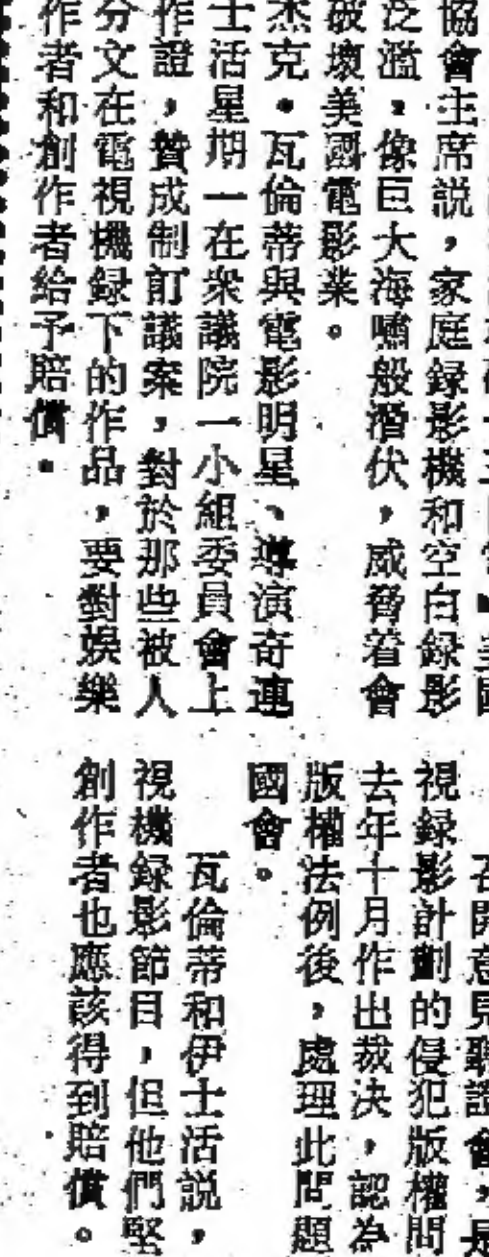 協會主席説，家庭録影機和空白録影
泛濫，像巨大海嘯般潛伏，威脅着會
破壞美國電影業。
杰克・瓦倫蒂與電影明星、導演奇連
士活星期一在衆議院一小組委員會上
作證，贊成制訂議案，對於那些被人
分文在電視機録下的作品，要對娛樂
作者和創作者給予賠償。
召開意見聽證會，是
視録影計劃的侵犯版權問
去年十月作出裁决，認為
版權法例後，處理此問題
國會。
瓦倫蒂和伊士活説，
視機録影節目，但他們堅
創作者也應該得到賠償。